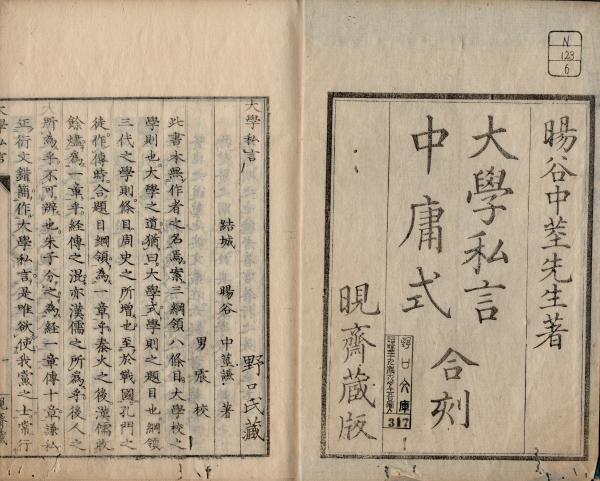 N
123
6
暘谷中莖先生著
大學私言
中庸式 合刻
晛齋蔵版
野口文庫
317
大學私言
結城 暘谷 中莖謙 著
男 震 校
野口氏藏
此書本無作者之名焉案三綱領八條目大學校之
學則也大學之道猶曰大學式學則之題目也綱領
三代之學則條目周史之所增也至於戰國孔門之
徒作傳時合題目綱領為一章乎秦火之後漢儒收
餘燼為一章乎經傳之混亦漢儒之所為乎後人之
所為乎不可辨也朱子分之為經一章傳十章謙私
正衍文錯簡作大學私言是唯欲使我黨之士常行
大學私言
一
晛齋藏